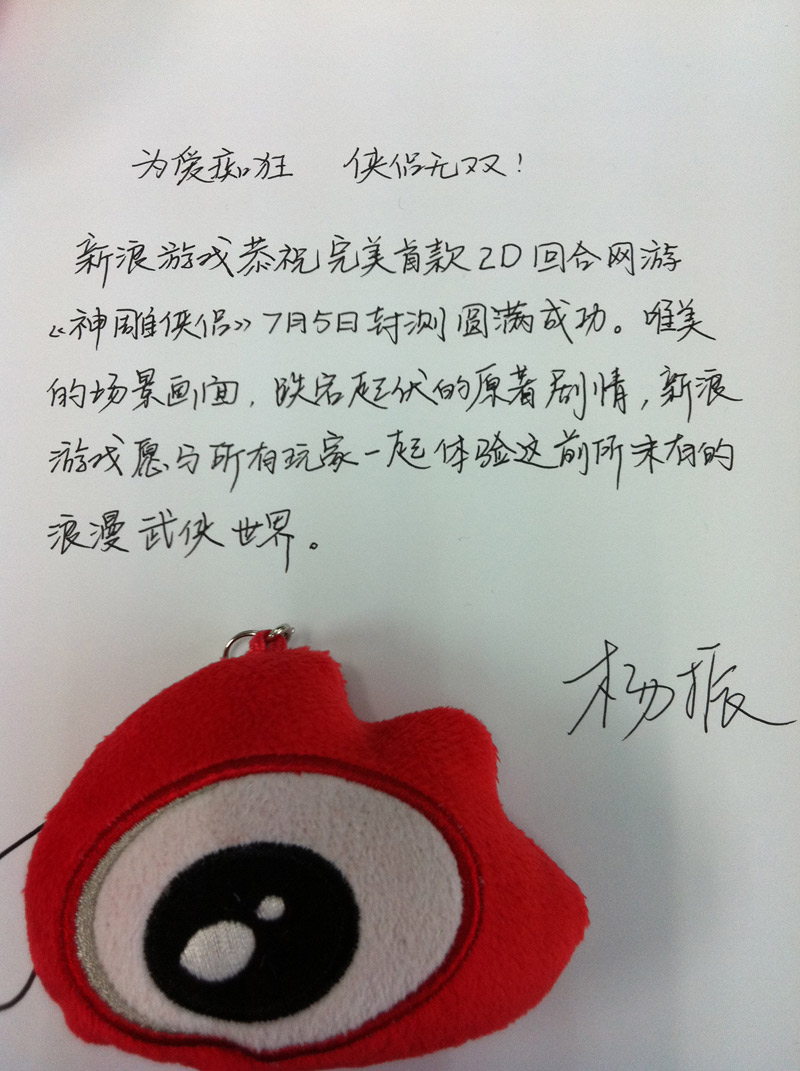 为爱痴狂 侠侣无双!
新浪游戏恭祝完美首款2D回合网游
《神雕侠侣》7月5日封测圆满成功。唯美
的场景画面,跌宕起伏的原著剧情,新浪
游戏愿与所有玩家一起体验这前所未有的
浪漫武侠世界。
杨振